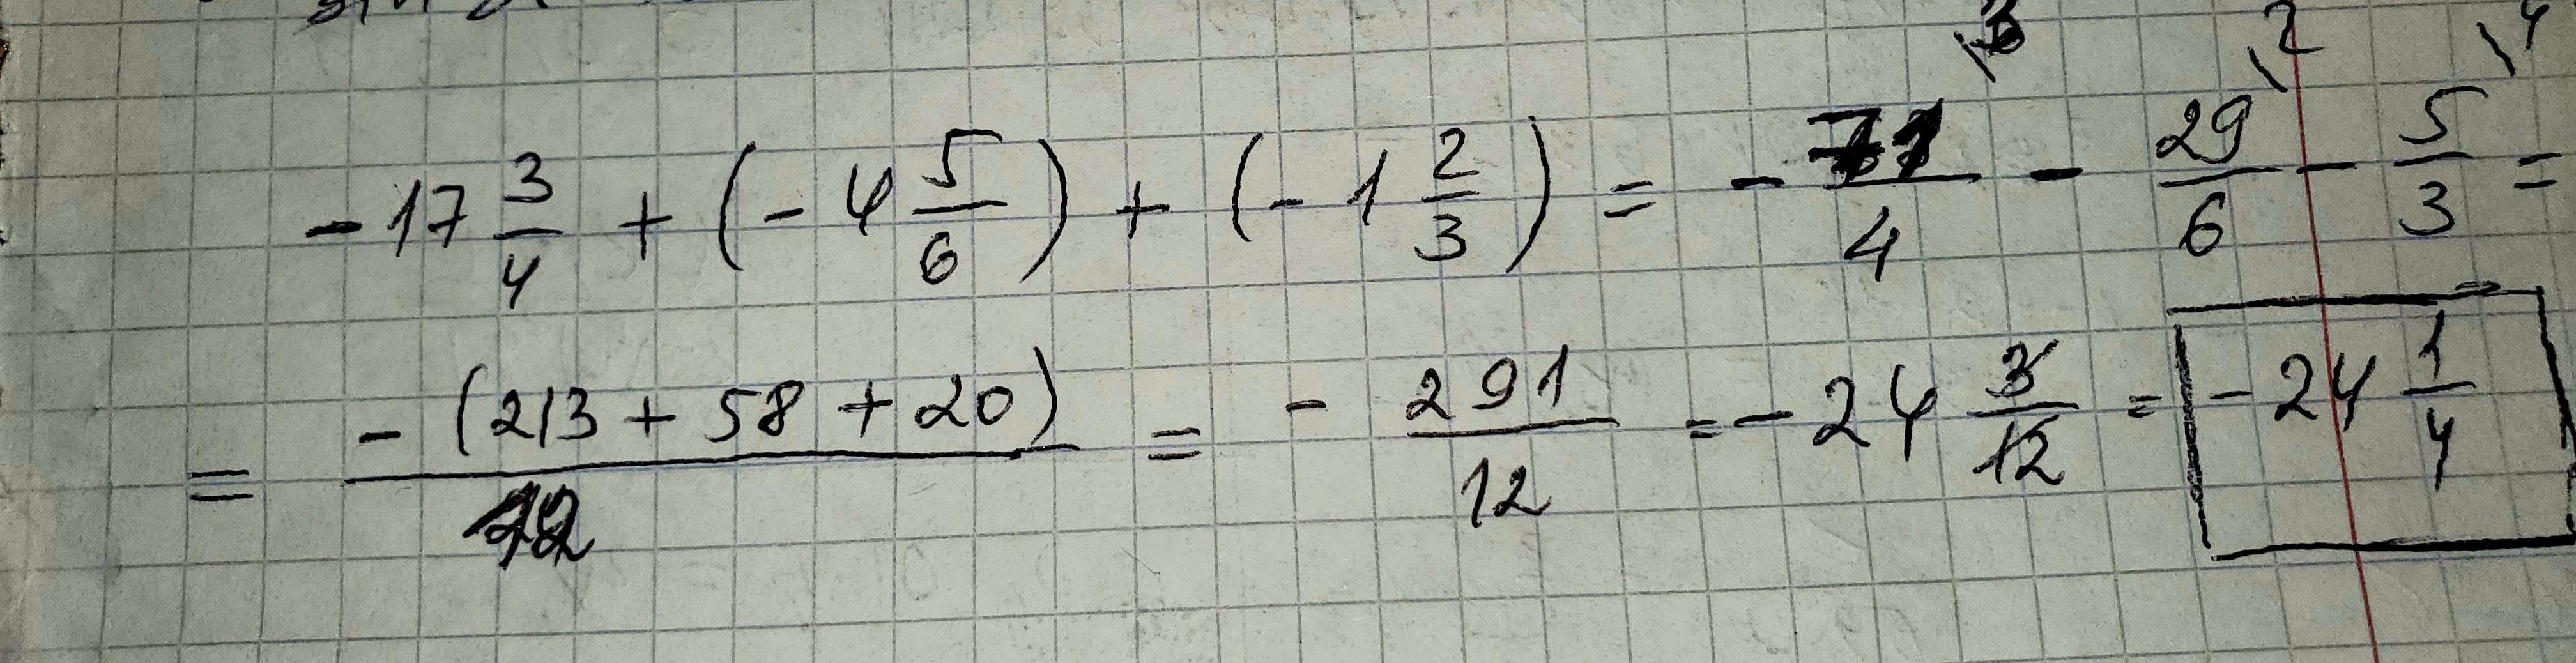 -17 3/4 + (-4 5/6) + (-1 2/3) = - 71/4 \3 - 29/6 \2 - 5/3 \4 =
= -(213 + 58 + 20)/12 = - 291/12 = -24 3/12 = -24 1/4